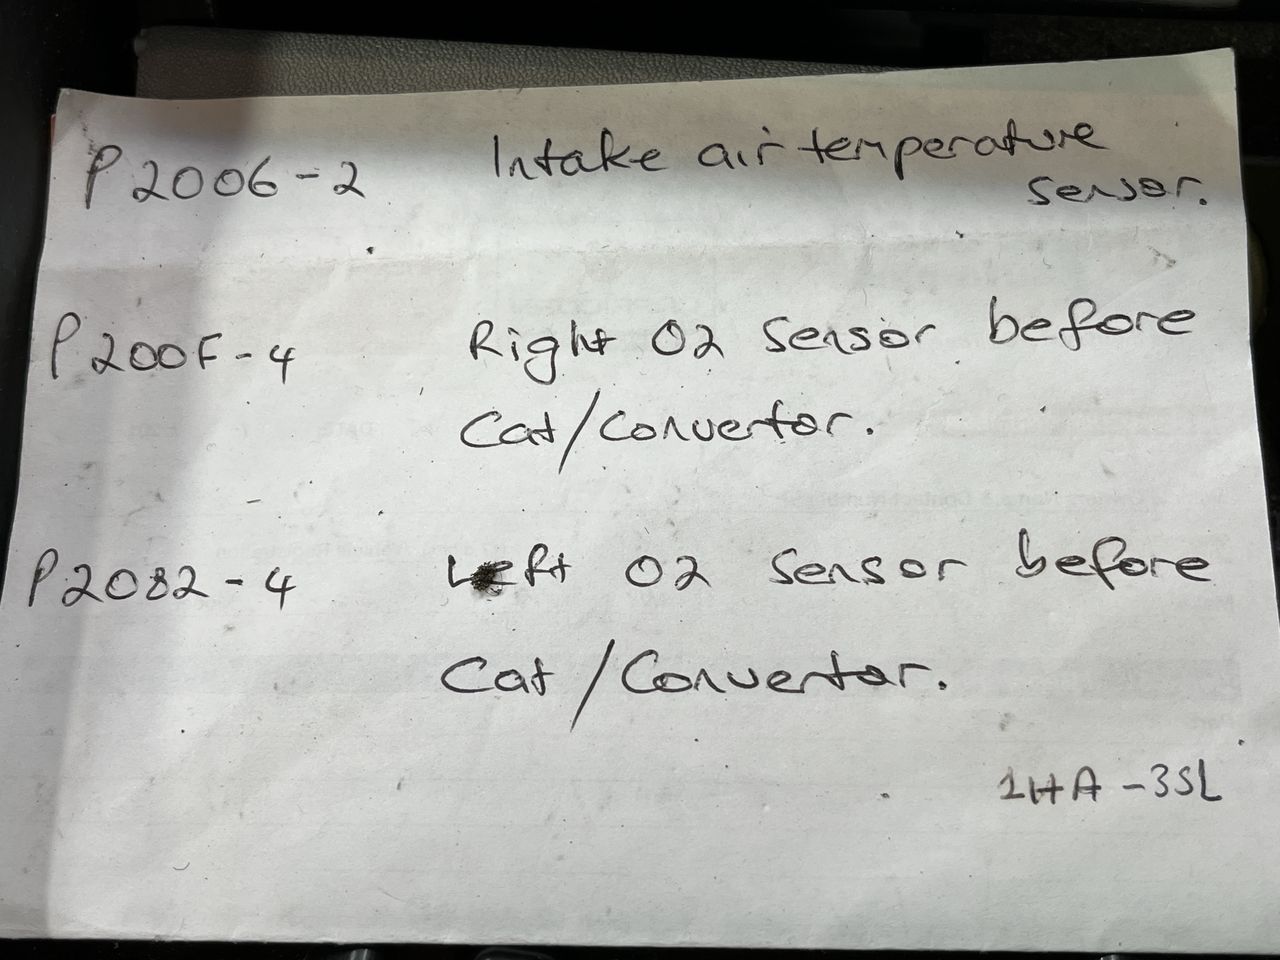 P2006-2 Intake air temperature
sensor.
P200F-4 Right O2 Sensor before
Cat/Convertor.
P2082-4 Left O2 Sensor before
Cat/Convertor.
1HA-3SL